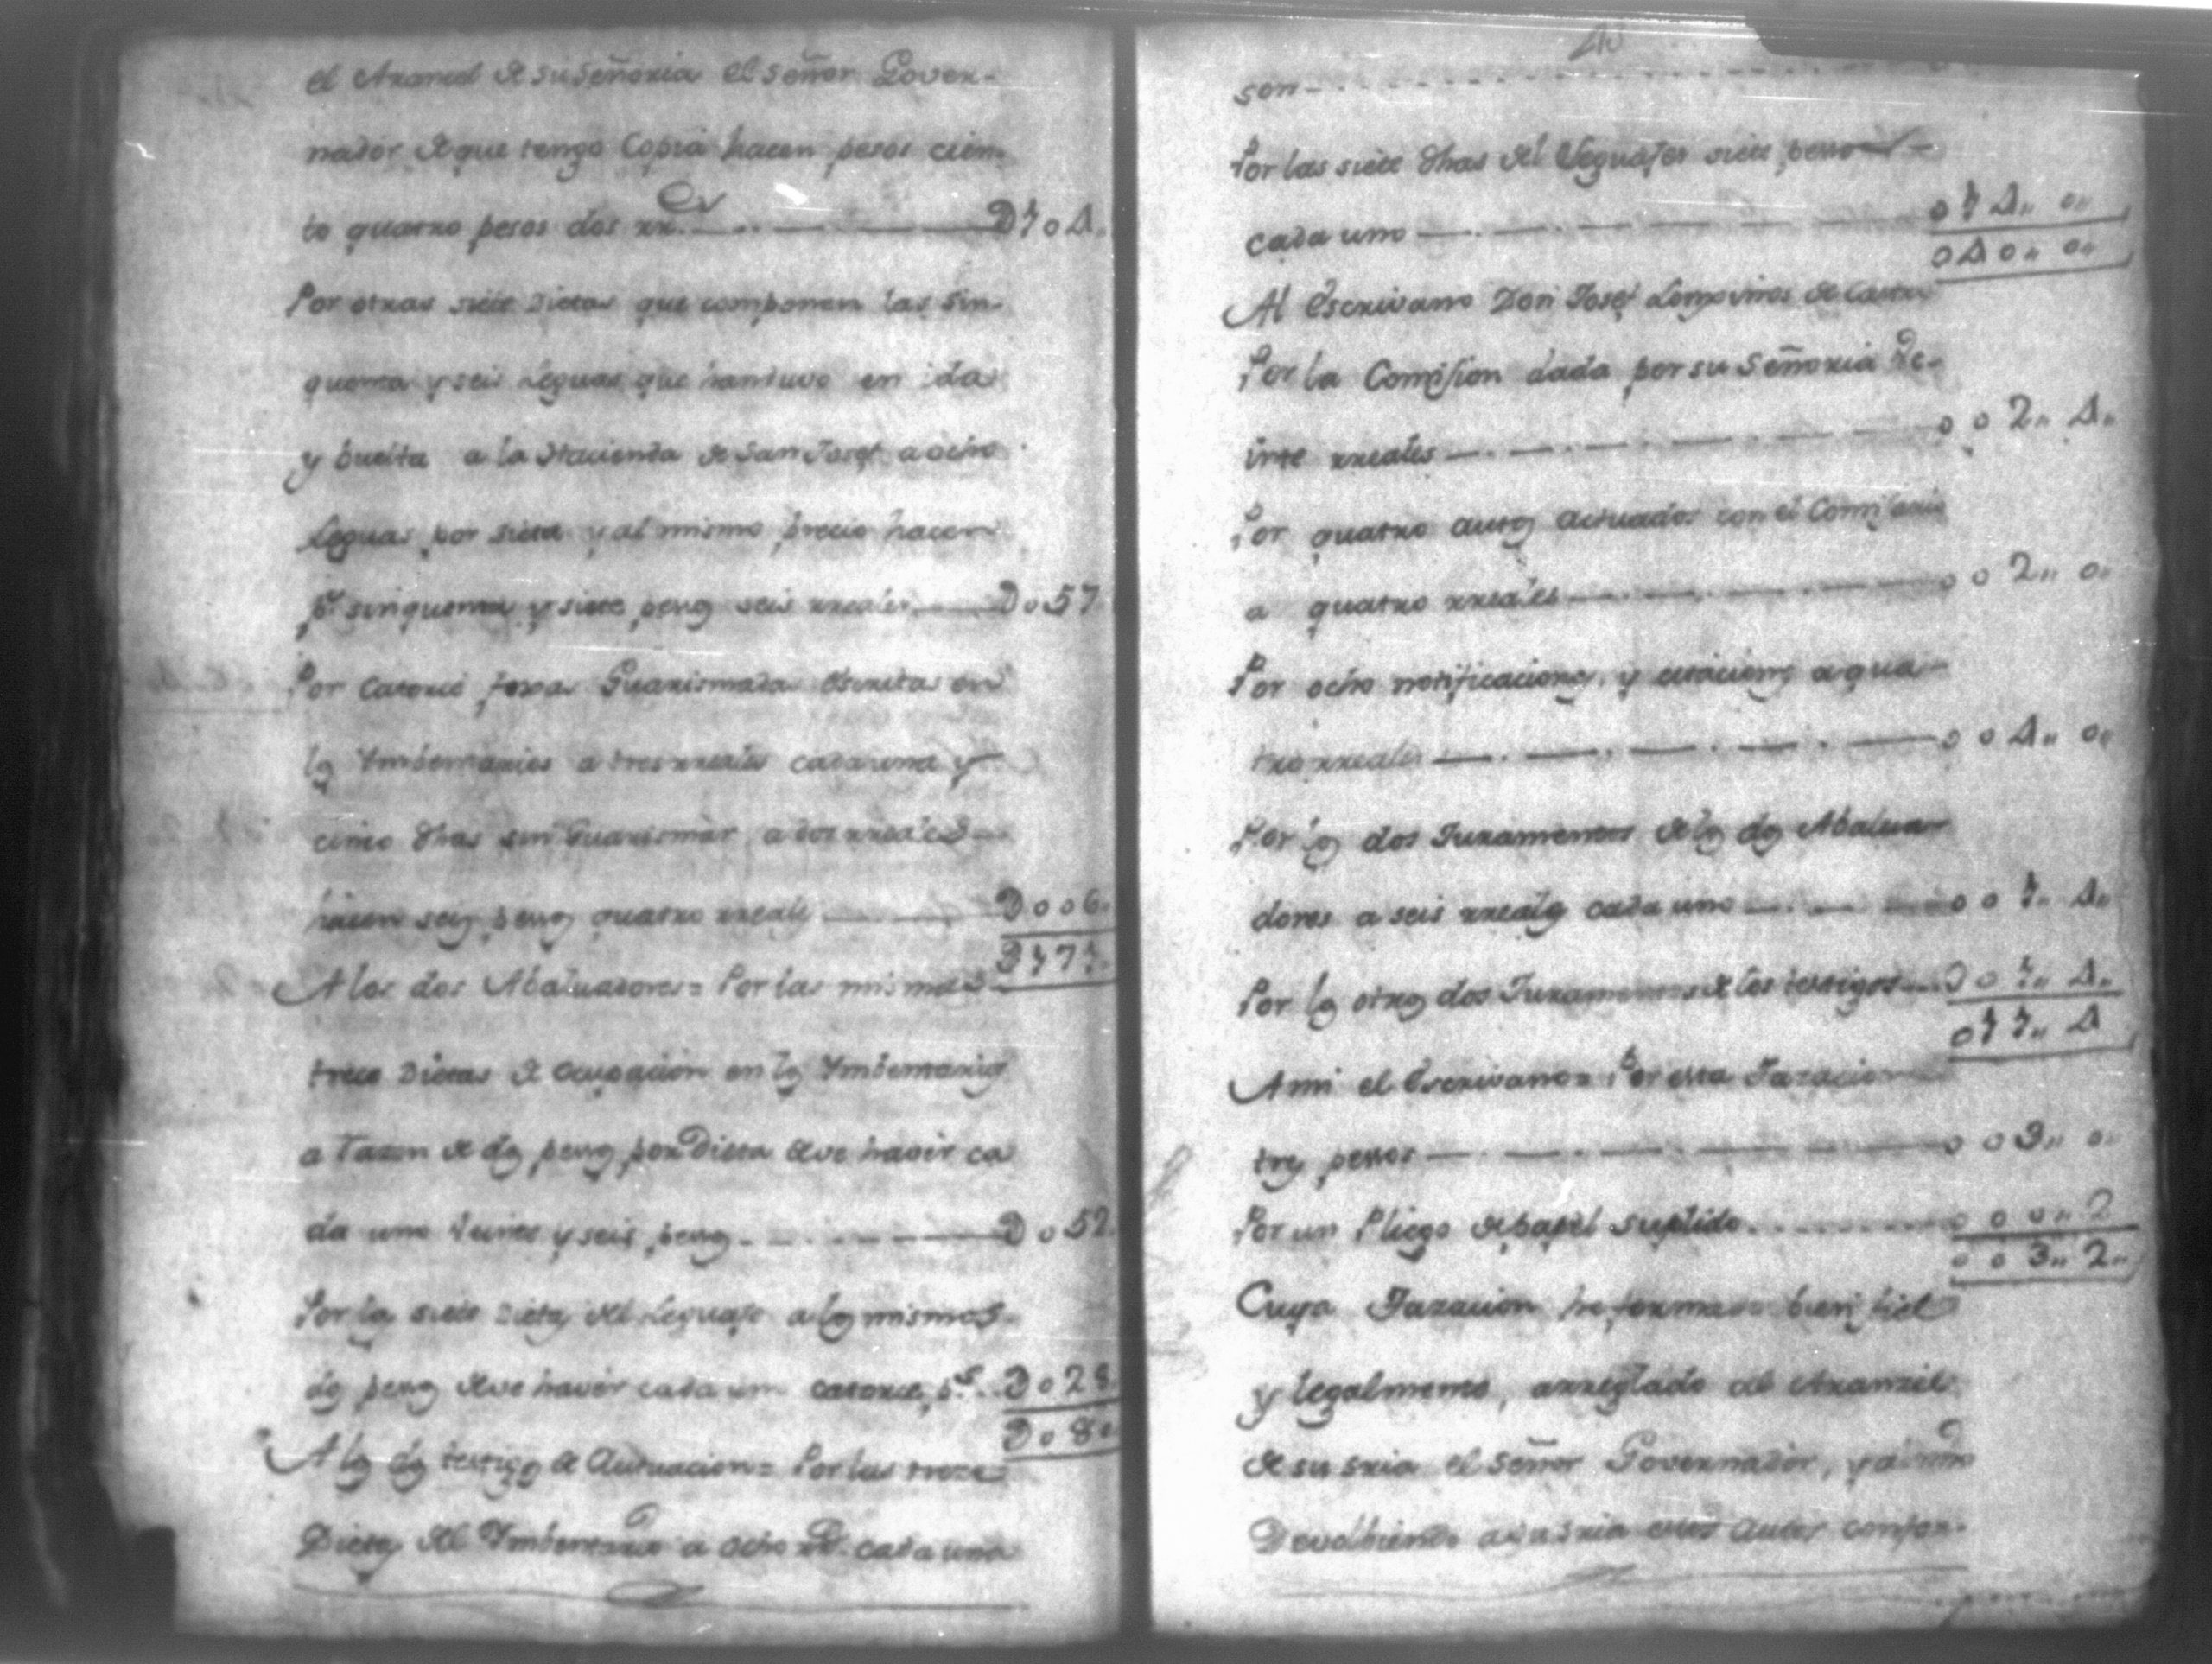 el Aranzel de su Señoria el Señor Gover-
nador de que tengo Copia hacen pesos cien-
to quatro pesos dos rr. D104.
Por otras siete Dietas que componen las sin-
quenta y seis Leguas que hantuvo en ida
y buelta a la Hacienda de San Josef a ocho
Leguas por dieta y al mismo precio hacen
ps. sinquenta y siete pesos seis rreales D057
Por Catorce foxas Guarismadas escritas en
los Ymbentarios a tres rreales cada una y
cinco dhas sin Guarismar a dos rreales
hacen seis pesos quatro rreales D006.
D171.
A los dos Abaluadores = Por las mismas
trece Dietas de ocupacion en los Ymbentarios
a razon de dos pesos por Dieta deve haver ca
da uno veinte y seis pesos D052.
Por las siete Dietas del Leguaje a los mismos
dos pesos deve haver cada uno catorce ps. D028
D080
A los dos testigos de Actuacion = Por las trece
Dietas del Ymbentario a ocho rr. cada una
40
son
Por las siete dhas del Leguajes siete pesos
cada uno 014,, 0,,
040,, 0,,
Al Escrivano Don Josef de Castro
Por la Comision dada por su Señoria Ve-
inte rreales 002,, 4,,
Por quatro autos actuados con el Comisario
a quatro rreales 002,, 0,,
Por ocho notificaciones, y citaciones a qua-
tro rreales 004,, 0,,
Por los dos Juramentos de los dos Abalua-
dores a seis rreales cada uno 001,, 4,,
Por los otros dos Juramentos de los testigos 001,, 4,,
011,, 4
A mi el Escrivano = Por esta Tazacion
tres pesos 003,, 0,,
Por un Pliego de papel suplido 000,, 2
003,, 2,,
Cuya Tazacion he formado bien fiel
y legalmente, arreglado al Aranzel
de su sria el Señor Governador, y al
Devolbiendo a su sria estos autos confor-